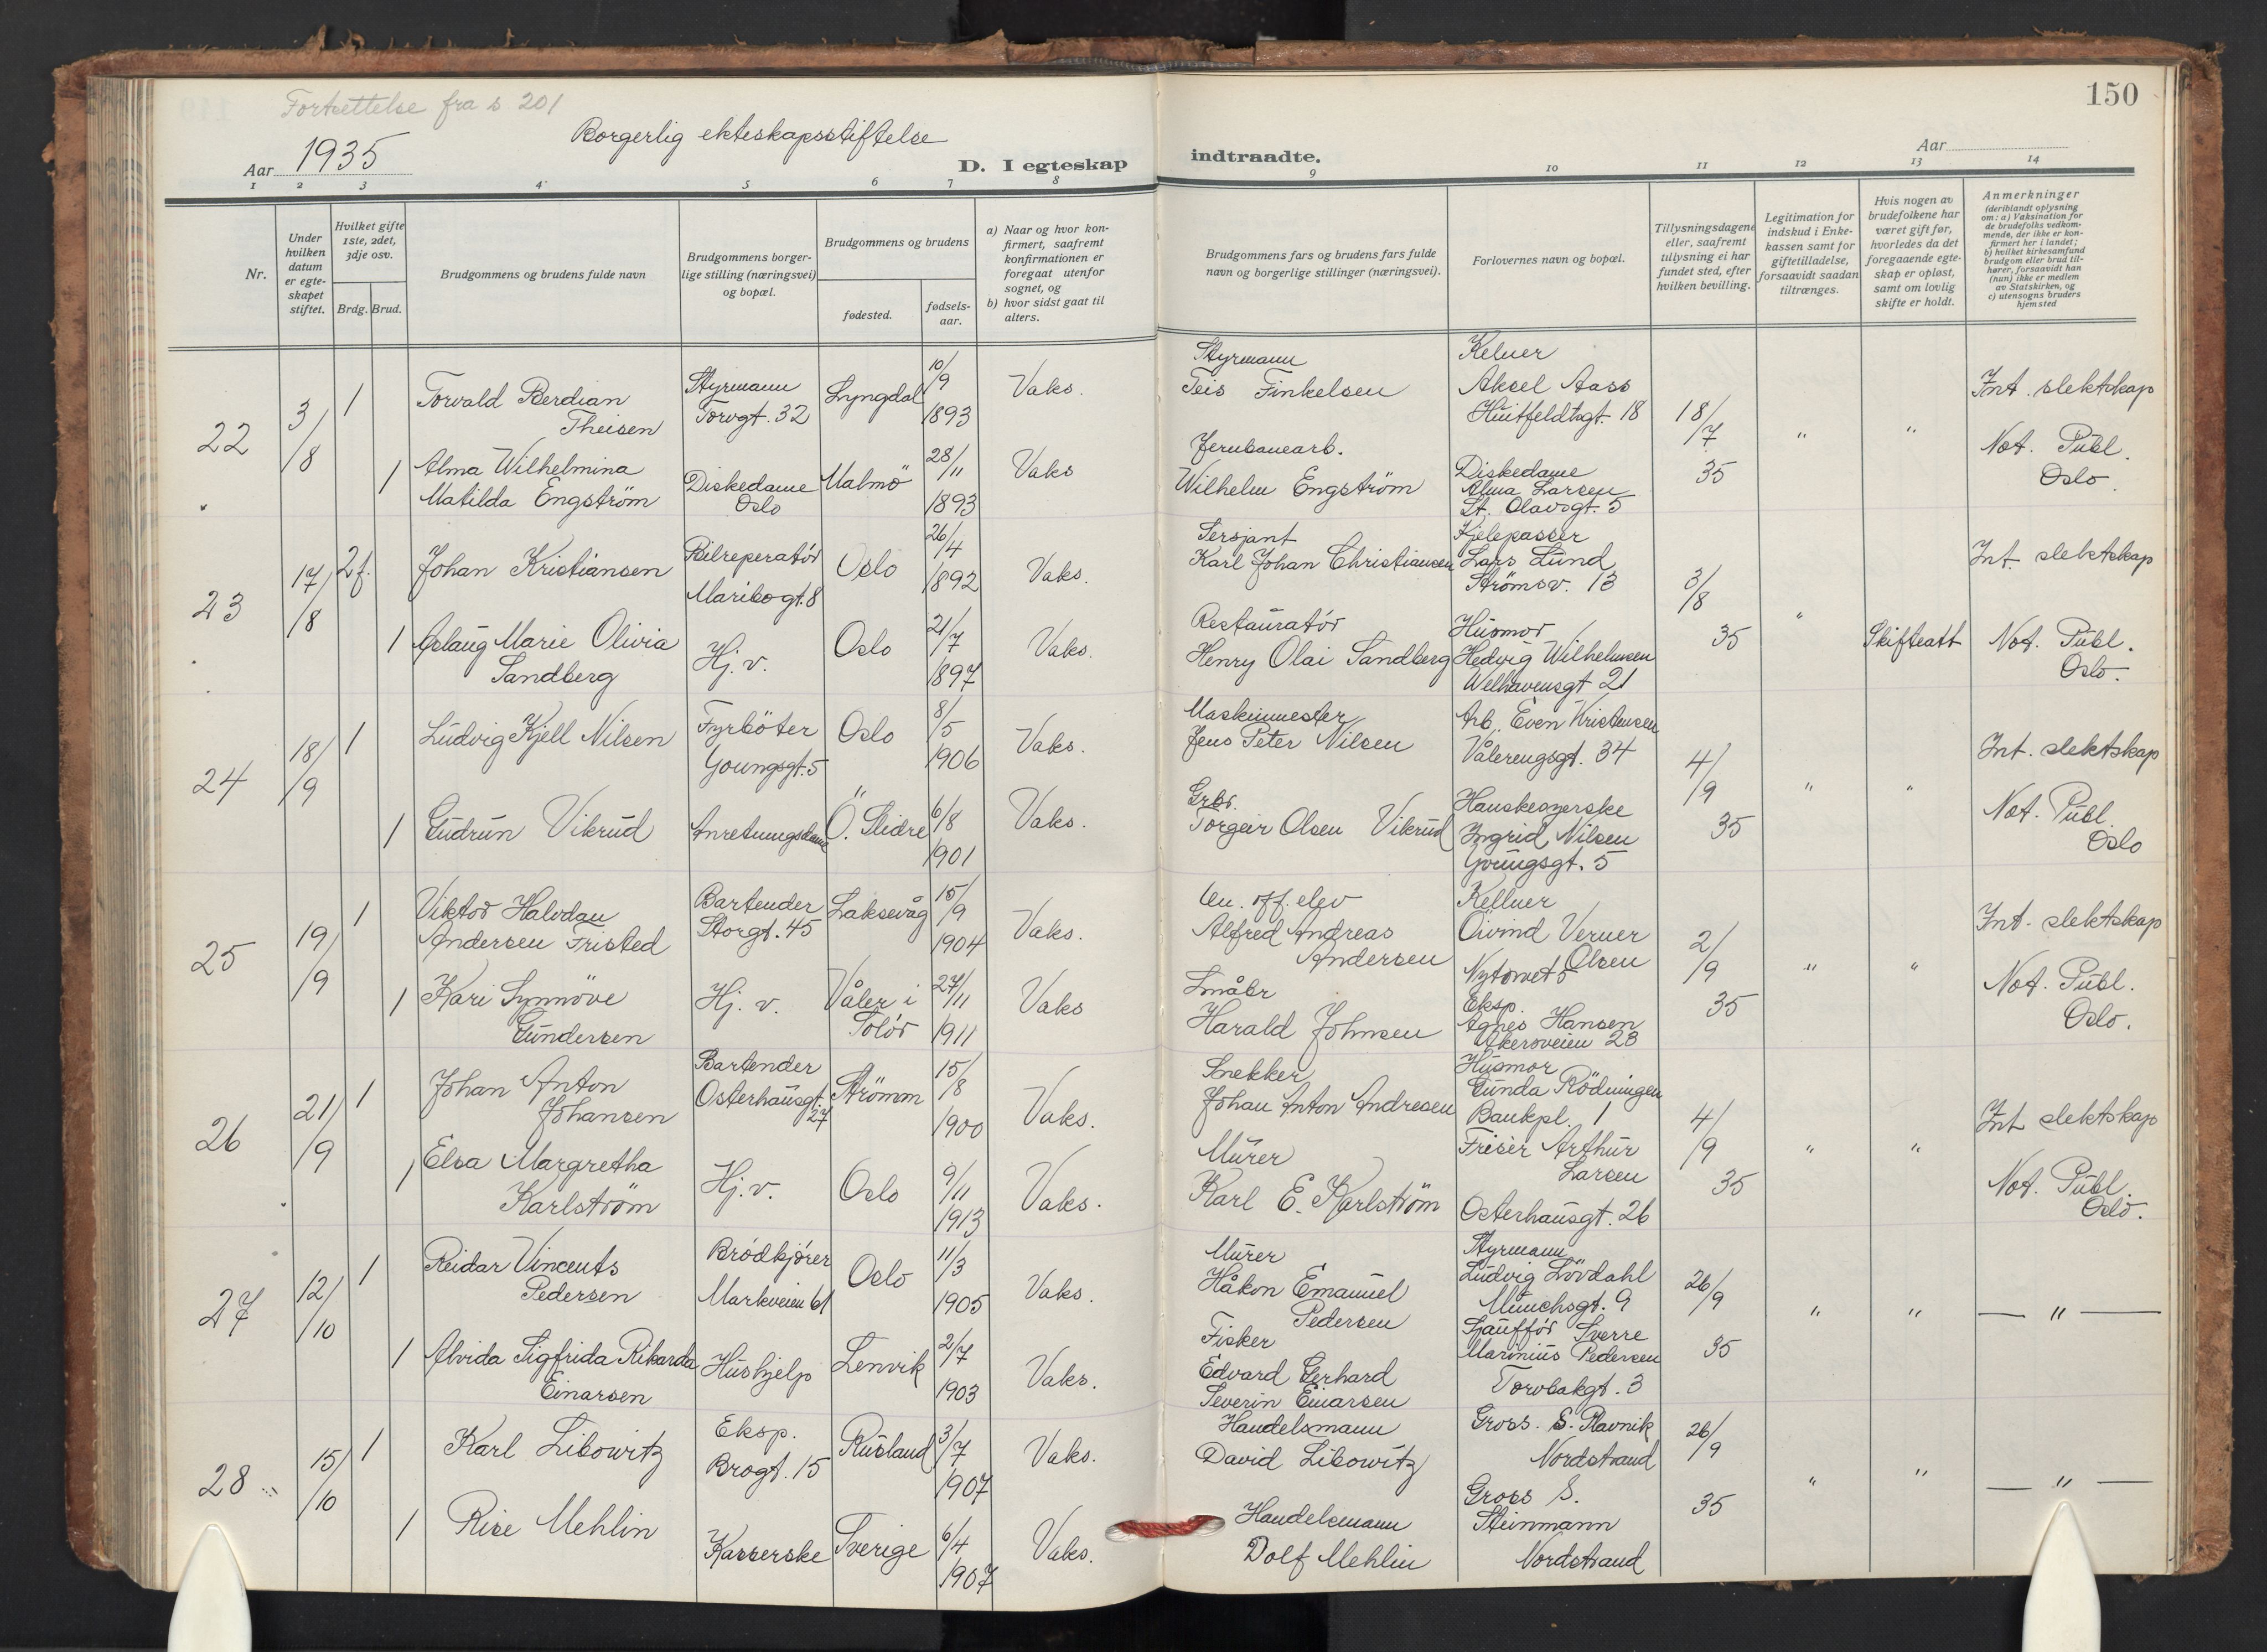 Fortsettelse fra s. 201
150
Borgerlig ekteskapsstiftelse
Aar 1935
D. I egteskap indtraadte.
Aar
1 2 3 4 5 6 7 8 9 10 11 12 13 14
Nr.
Under hvilken datum er egteskapet stiftet.
Hvilket gifte 1ste, 2det, 3dje osv.
Brdg. Brud.
Brudgommens og brudens fulde navn
Brudgommens borgerlige stilling (næringsvei) og bopæl.
Brudgommens og brudens
fødested.
fødselsaar.
a) Naar og hvor konfirmert, saafremt konfirmationen er foregaat utenfor sognet, og
b) hvor sidst gaat til alters.
Brudgommens fars og brudens fars fulde navn og borgerlige stillinger (næringsvei).
Forlovernes navn og bopæl.
Tillysningsdagene eller, saafremt tillysning ei har fundet sted, efter hvilken bevilling.
Legitimation for indskud i Enkekassen samt for giftetilladelse, forsaavidt saadan tiltrænges.
Hvis nogen av brudefolkene har været gift før, hvorledes da det foregaaende egteskap er opløst, samt om lovlig skifte er holdt.
Anmerkninger
(deriblandt oplysning om: a) Vaksination for de brudefolks vedkommende, der ikke er konfirmert her i landet; b) hvilket kirkesamfund brudgom eller brud tilhører, forsaavidt han (hun) ikke er medlem av Statskirken, og c) utensogns bruders hjemsted
22
3/8
1
Torvald Berdian
Theisen
Styrmann
Torvgt. 32
Lyngdal
10/9
1893
Vaks.
Styrmann
Teis Finkelsen
Kelner
Aksel Aass
Huitfeldtsgt. 18
18/7
35
"
"
Int. slektskap
Not. Publ.
Oslo.
1
Alma Wilhelmina
Matilda Engström
Diskedame
Oslo
Malmö
28/11
1893
Vaks
Jernbanearb.
Wilhelm Engström
Diskedame
Alma Larsen
St. Olavsgt. 5
23
17/8
2 f.
Johan Kristiansen
Bilreperatör
Maribogt. 8
Oslo
26/4
1892
Vaks.
Sersjant
Karl Johan Christiansen
Kjelepasser
Lars Lund
Strömsv. 13
3/8
35
"
Skifteatt
Int. slektskap
Not. Publ.
Oslo.
1
Aslaug Marie Olivia
Sandberg
Hj. v.
Oslo
21/7
1897
Vaks.
Restauratör
Henry Olai Sandberg
Husmor
Hedvig Wilhelmsen
Welhavensgt 21
24
18/9
1
Ludvig Kjell Nilsen
Fyrböter
Youngsgt. 5
Oslo
8/5
1906
Vaks.
Maskinmester
Jens Peter Nilsen
Arb. Even Kristensen
Vålerengsgt. 34
4/9
35
"
"
Int. slektskap
Not. Publ.
Oslo
1
Gudrun Vikrud
Anretningsdame
Ö. Slidre
6/8
1901
Vaks.
Grbr.
Torgeir Olsen Vikrud
Hanskesyerske
Ingrid Nilsen
Youngsgt. 5
25
19/9
1
Viktor Halvdan
Andersen Fristed
Bartender
Storgt. 45
Laksevåg
15/9
1904
Vaks.
Un. off. elev
Alfred Andreas
Andersen
Kellner
Öivind Verner
Olsen
Nytorvet 5
2/9
35
"
"
Int. slektskap
Not. Publ.
Oslo.
1
Kari Synnöve
Gundersen
Hj. v.
Våler i
Solör
27/11
1911
Vaks
Småbr
Harald Johnsen
Eksp.
Agnes Hansen
Akersveien 23
26
21/9
1
Johan Anton
Johansen
Bartender
Osterhausgt.
27
Strömm
15/8
1900
Vaks.
Snekker
Johan Anton Andresen
Husmor
Gunda Rödningen
Bankpl. 1
4/9
35
"
"
Int slektskap
Not. Publ.
Oslo.
1
Elsa Margretha
Karlström
Hj. v.
Oslo
9/11
1913
Vaks.
Murer
Karl E. Karlström
Frisér Arthur
Larsen
Osterhausgt. 26
27
12/10
1
Reidar Vincents
Pedersen
Brödkjörer
Markveien 61
Oslo
11/3
1905
Vaks.
Murer
Håkon Emanuel
Pedersen
Styrmann
Ludvig Lövdahl
Munchsgt. 9
26/9
35
"
"
— " —
1
Alvida Sigfrida Rikarda
Einarsen
Hushjelp
Lenvik
2/7
1903
Vaks.
Fisker
Edvard Gerhard
Severin Einarsen
Sjafför Sverre
Marinius Pedersen
Torvbakgt. 3
28
15/10
1
Karl Libowitz
Eksp.
Brogt. 15
Rusland
3/7
1907
Vaks.
Handelsmann
David Libowitz
Gross. S. Plavnik
Nordstrand
26/9
35
"
"
— " —
1
Rise Mehlin
Kasserske
Sverige
6/4
1907
Vaks.
Handelsmann
Dolf Mehlin
Gross S.
Steinmann
Nordstrand